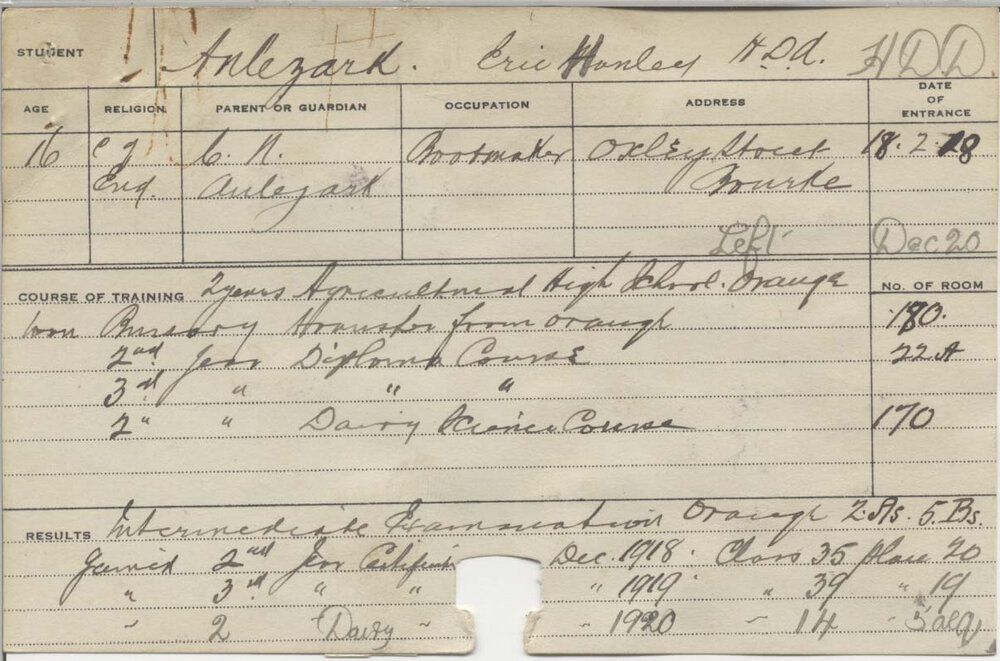 STUDENT Aulezark. Eric Hanley H.D.A. HDD
AGE RELIGION PARENT OR GUARDIAN OCCUPATION ADDRESS DATE OF ENTRANCE
16 C of C. N. Bootmaker Oxley Street 18. 2. 18
Eng. Aulezark Bourke
Left Dec 20
COURSE OF TRAINING 2 years Agricultural High School. Orange NO. OF ROOM
Won Bursary transfer from Orange 180.
2nd Year Diploma Course 22A
3rd " " "
2" " Dairy Science Course 170
RESULTS Intermediate Examination Orange 2.As. 5.Bs.
Gained 2nd Year Certificate Dec. 1918. Class 35 place 20
" 3rd " " " 1919 " 39 " 19
" 2 Dairy " " 1920 " 14 " 5